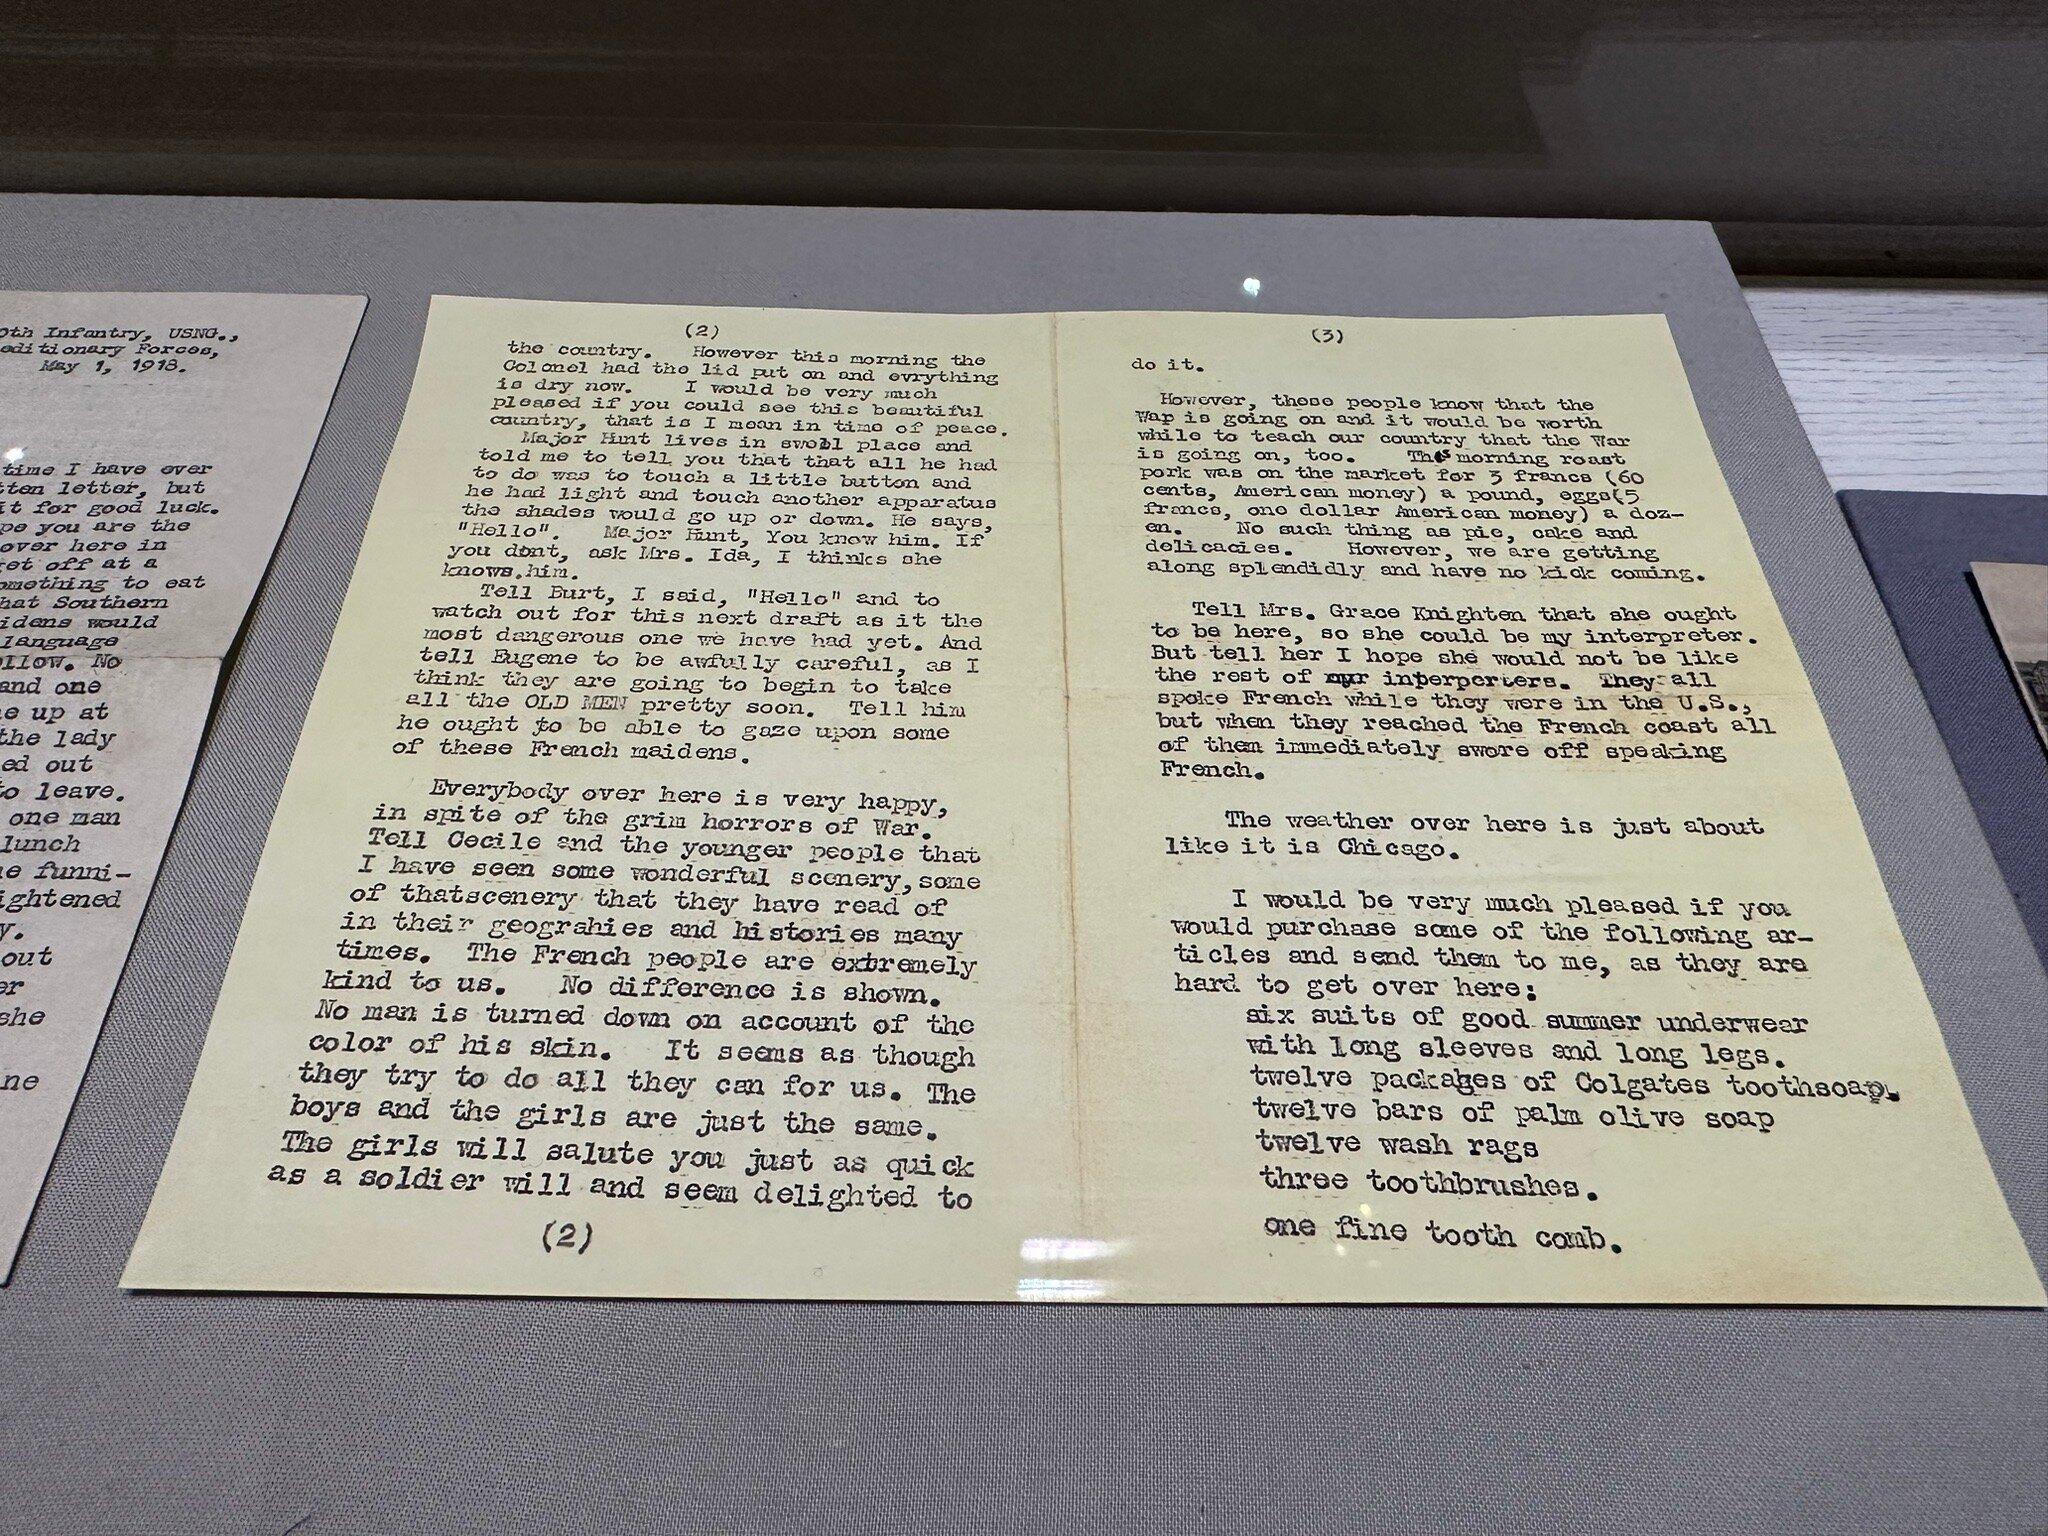 0th Infantry, USNG.,
editionary Forces,
May 1, 1918.
time I have ever
tten letter, but
it for good luck.
pe you are the
over here in
get off at a
omething to eat
hat Southern
idens would
language
ollow. No
and one
e up at
the lady
ed out
to leave.
one man
lunch
e funni-
ightened
y.
out
er
she
ne
(2)
the country. However this morning the
Colonel had the lid put on and evrything
is dry now. I would be very much
pleased if you could see this beautiful
country, that is I mean in time of peace.
Major Hunt lives in swell place and
told me to tell you that that all he had
to do was to touch a little button and
he had light and touch another apparatus
the shades would go up or down. He says,
"Hello". Major Hunt, You know him. If
you dont, ask Mrs. Ida, I thinks she
knows.him.
Tell Burt, I said, "Hello" and to
watch out for this next draft as it the
most dangerous one we have had yet. And
tell Eugene to be awfully careful, as I
think they are going to begin to take
all the OLD MEN pretty soon. Tell him
he ought to be able to gaze upon some
of these French maidens.
Everybody over here is very happy,
in spite of the grim horrors of War.
Tell Cecile and the younger people that
I have seen some wonderful scenery, some
of thatscenery that they have read of
in their geograhies and histories many
times. The French people are extremely
kind to us. No difference is shown.
No man is turned down on account of the
color of his skin. It seems as though
they try to do all they can for us. The
boys and the girls are just the same.
The girls will salute you just as quick
as a soldier will and seem delighted to
(2)
(3)
do it.
However, these people know that the
War is going on and it would be worth
while to teach our country that the War
is going on, too. This morning roast
pork was on the market for 3 francs (60
cents, American money) a pound, eggs(5
francs, one dollar American money) a doz-
en. No such thing as pie, cake and
delicacies. However, we are getting
along splendidly and have no kick coming.
Tell Mrs. Grace Knighten that she ought
to be here, so she could be my interpreter.
But tell her I hope she would not be like
the rest of our inperporters. They all
spoke French while they were in the U.S.,
but when they reached the French coast all
of them immediately swore off speaking
French.
The weather over here is just about
like it is Chicago.
I would be very much pleased if you
would purchase some of the following ar-
ticles and send them to me, as they are
hard to get over here:
six suits of good summer underwear
with long sleeves and long legs.
twelve packages of Colgates toothsoap.
twelve bars of palm olive soap
twelve wash rags
three toothbrushes.
one fine tooth comb.